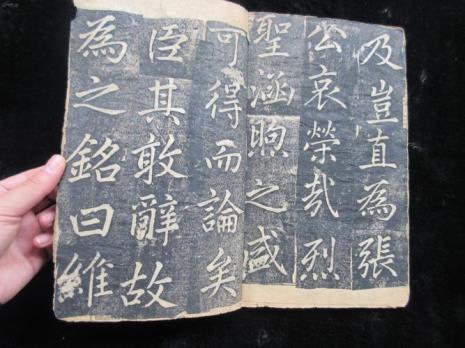 及豈直為張
公哀榮哉烈
聖涵煦之盛
可得而論矣
臣其敢辭故
為之銘曰維